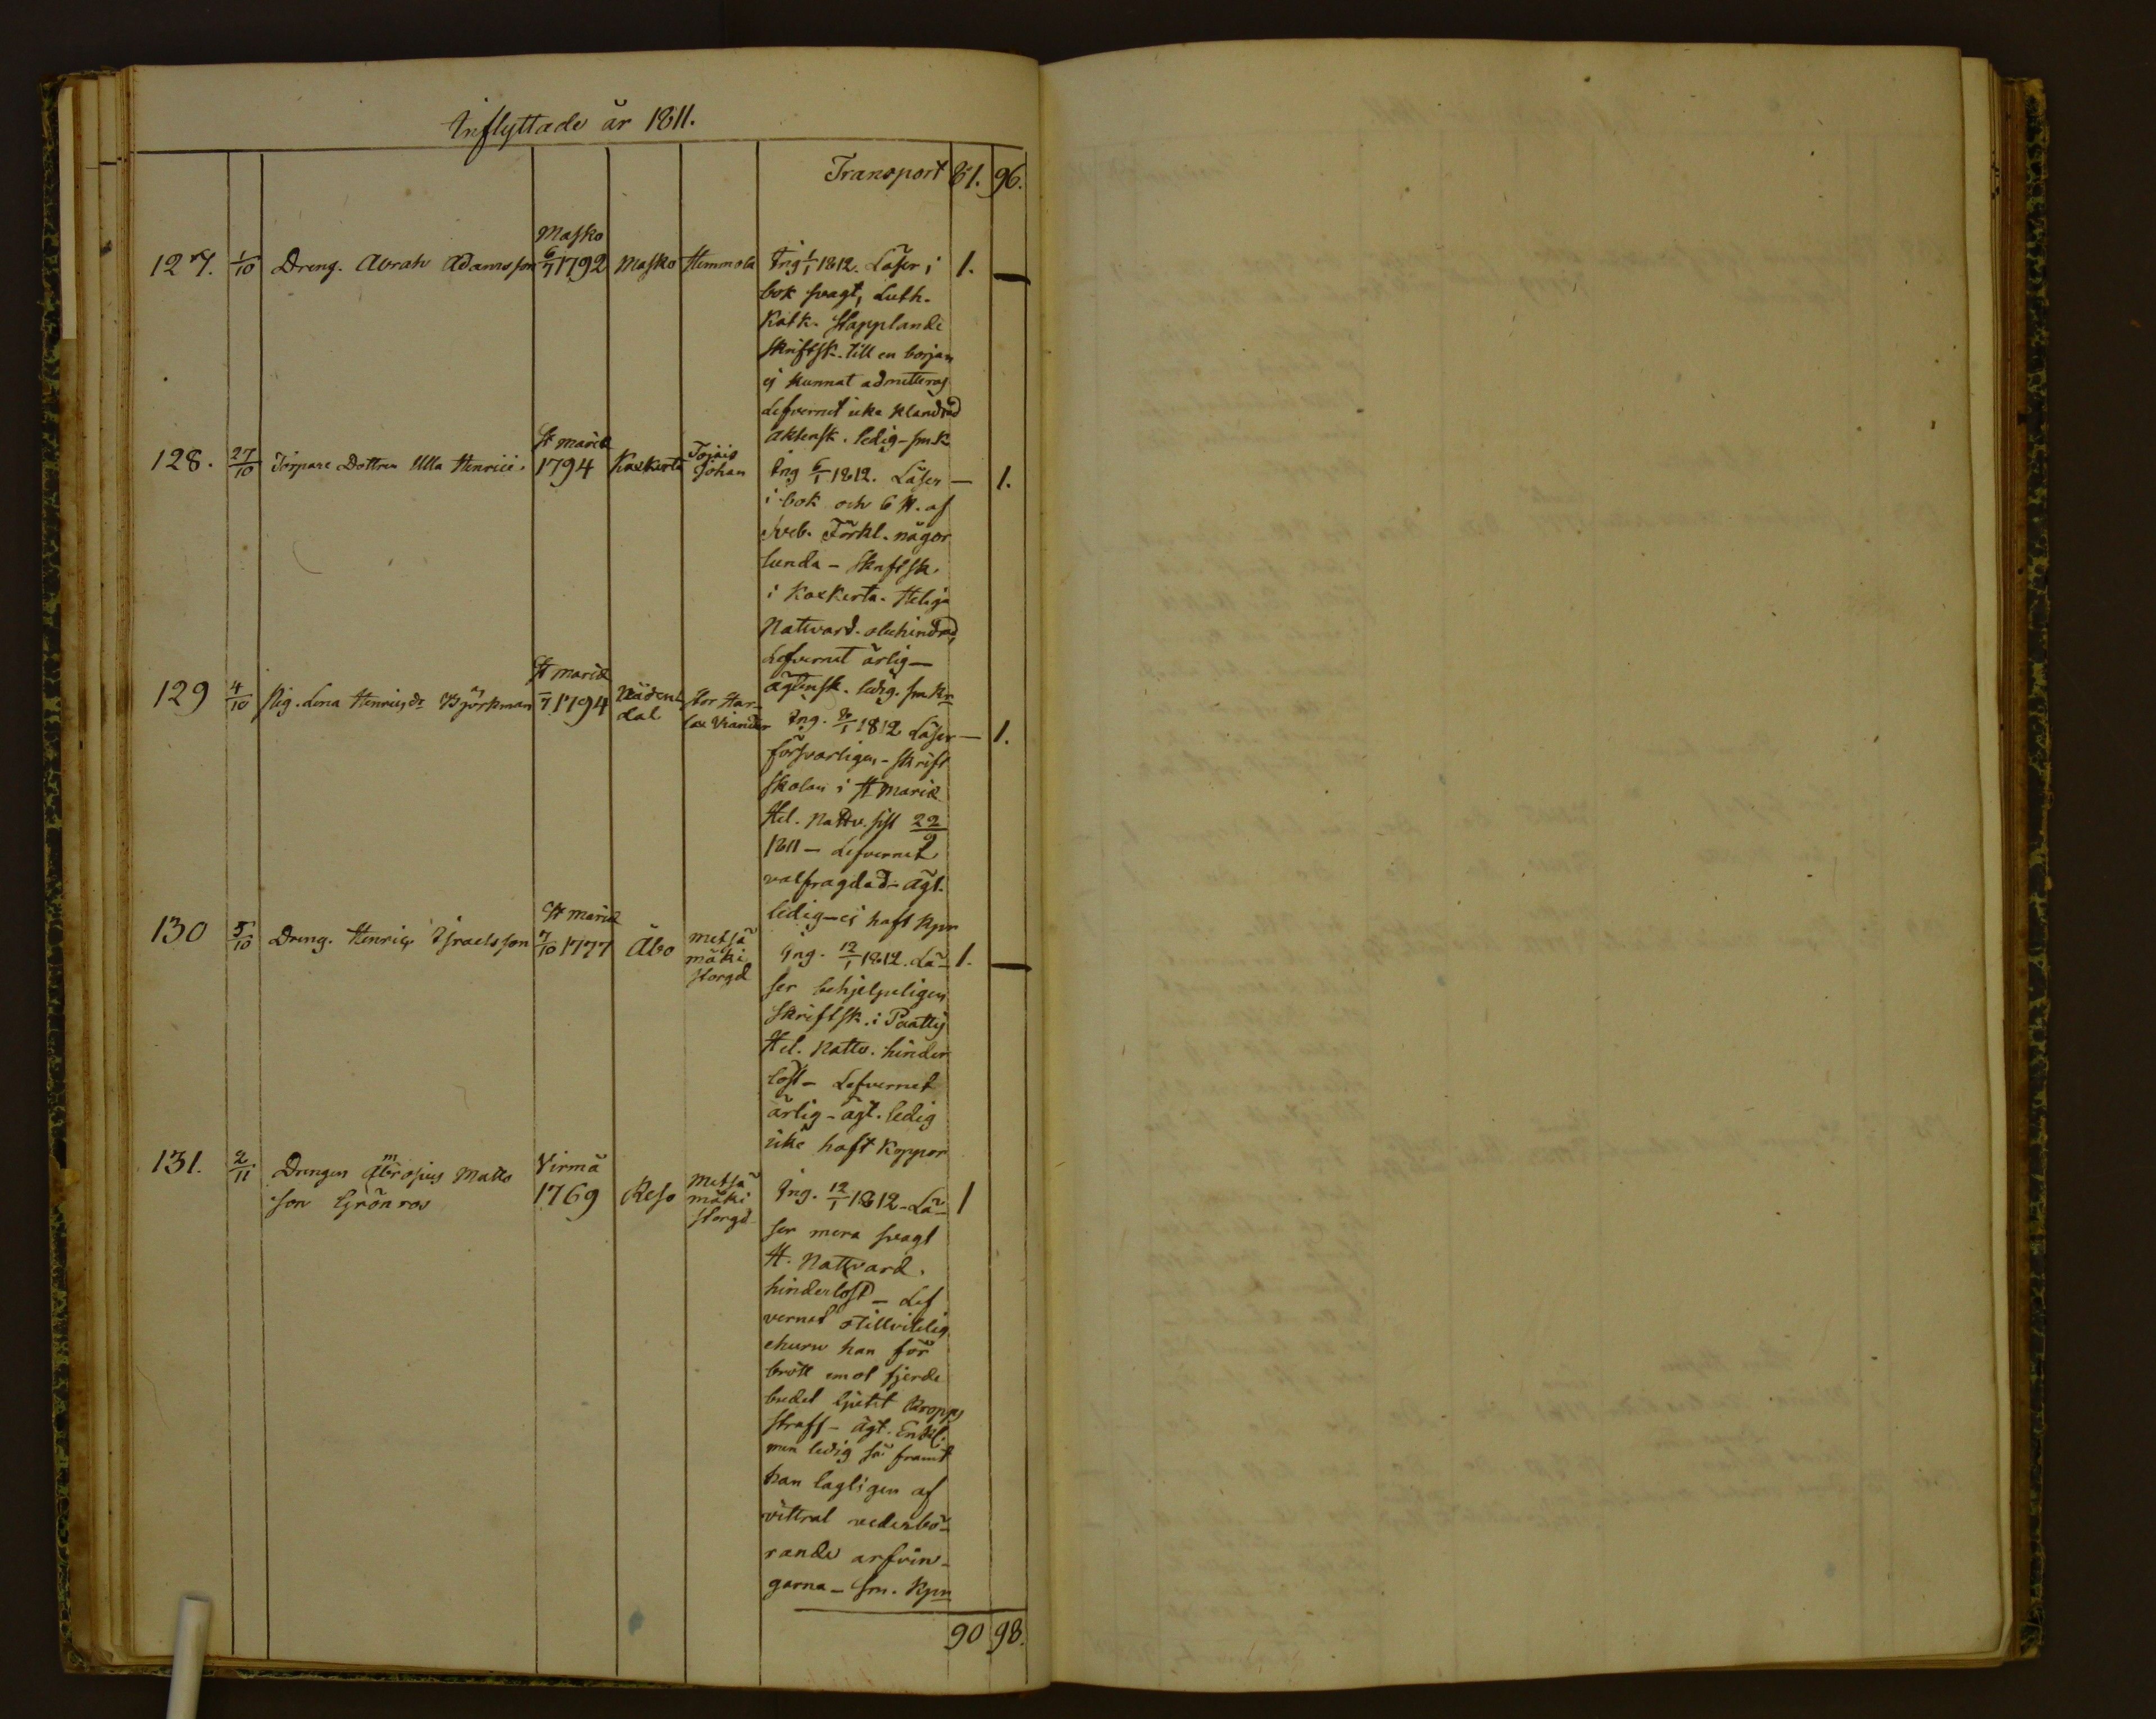 Inflyttade år 1811.
Transport 81. 96.
Masko
127. 1/10 Dreng. Abrah Adamsson 6/7 1792 Masko Hemmola Ing 1/1 1812. Läser i 1. —
bok svagt, Luth.
Katk. stapplande
skriftsk. till en början
ej kunnat admitteras
Lefvernet icke klandrad
aktensk. ledig – sm. k
St marie
128. 27/10 Torpare Dottren Ulla Henrici. 1794 Kaxkerta Tojais Johan Ing 6/1 1812. Läser — 1.
i bok och 6 H. af
Sveb. Förkl. någor
lunda – skriftsk.
i Kaxkerta. Heliga
Nattvard. obehindrad,
Lefvernet ärlig —
ägtensk. ledig. sm. kr
St mariæ
129 4/10 Pig. Lena Henricsdr Björkman 7 1794 Nådendal Stor Har-
lax Viander Ing. 8/1 1812 Läser — 1.
försvarligen – skrift
skolan i St Mariæ
Hel. Nattv. sist 22/9
1811 – Lefvernet
välfrägdad – ägt.
ledig – ej haft kpr
St mariæ
130 5/10 Dreng. Henric Israelsson 7/10 1777 Åbo Metsä
mäki
storgd Ing. 12/1 1812. Lä- 1. —
ser behjelpeligen
skriftsk. i Paattis
Hel. Nattv. hinder
löst – Lefvernet
ärlig – ägt. ledig
icke haft koppor
131. 2/11 Drengen Ambrosius Matts
son Grönroos Virmå
1769 Reso Metsä
mäki
storgd Ing. 12/1 1812 – Lä- 1
ser mera svagt
H. Nattvard.
hinderlöst – Lef
vernet otillvitelig
ehuru han för
brott emot fjerde
budet ljutit kropps
straff – Ägt. Enkl.
men ledig så framt
han lagligen af
vittrat vederbö-
rande arfvin-
garna – sm. kpr
90 98.